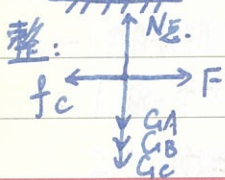 N总.
整:
fc F
GA
GB
GC